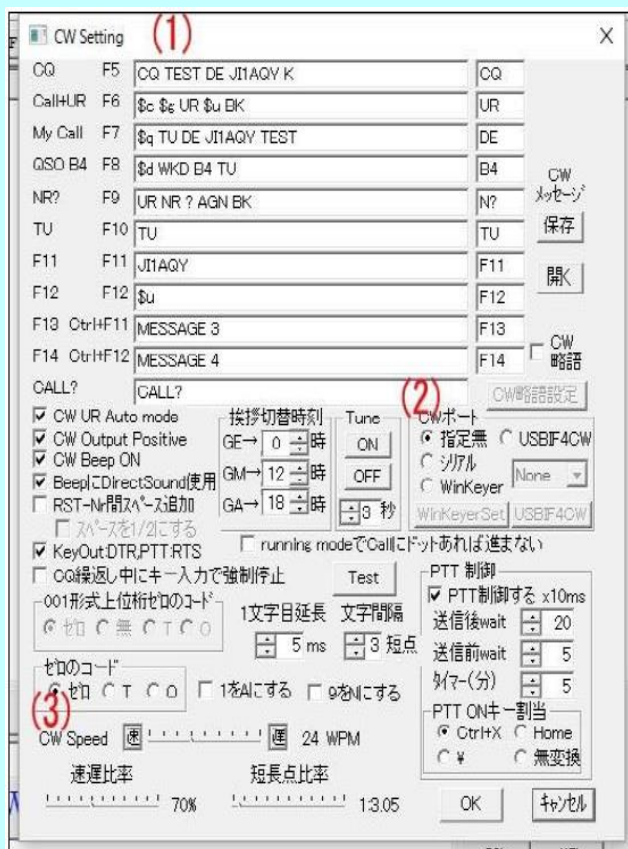 CW Setting
(1)
X
CQ F5 CQ TEST DE JI1AQY K CQ
Call+UR F6 $c $g UR $u BK UR
My Call F7 $q TU DE JI1AQY TEST DE
QSO B4 F8 $d WKD B4 TU B4
NR? F9 UR NR ? AGN BK N?
TU F10 TU TU
F11 F11 JI1AQY F11
F12 F12 $u F12
F13 Ctrl+F11 MESSAGE 3 F13
F14 Ctrl+F12 MESSAGE 4 F14
CALL? CALL?
CW
メッセージ
保存
開く
CW
略語
CW略語設定
CW UR Auto mode
CW Output Positive
CW Beep ON
BeepにDirectSound使用
RST-Nr間スペース追加
スペースを1/2にする
KeyOut:DTR,PTT:RTS
CQ繰返し中にキー入力で強制停止
挨拶切替時刻
GE→ 0 時
GM→ 12 時
GA→ 18 時
Tune
ON
OFF
3 秒
(2)
CWポート
指定無 USBIF4CW
シリアル
WinKeyer
None
WinKeyerSet USBIF4CW
running modeでCallにドットあれば進まない
Test
001形式上位桁ゼロのコード
ゼロ 無 T O
1文字目延長 文字間隔
5 ms 3 短点
PTT 制御
PTT制御する x10ms
送信後wait 20
送信前wait 5
タイマー(分) 5
PTT ONキー割当
Ctrl+X Home
¥ 無変換
ゼロのコード
ゼロ T O
1をAにする 9をNにする
(3)
CW Speed 速 遅 24 WPM
速遅比率 短長点比率
70% 1:3.05
OK キャンセル